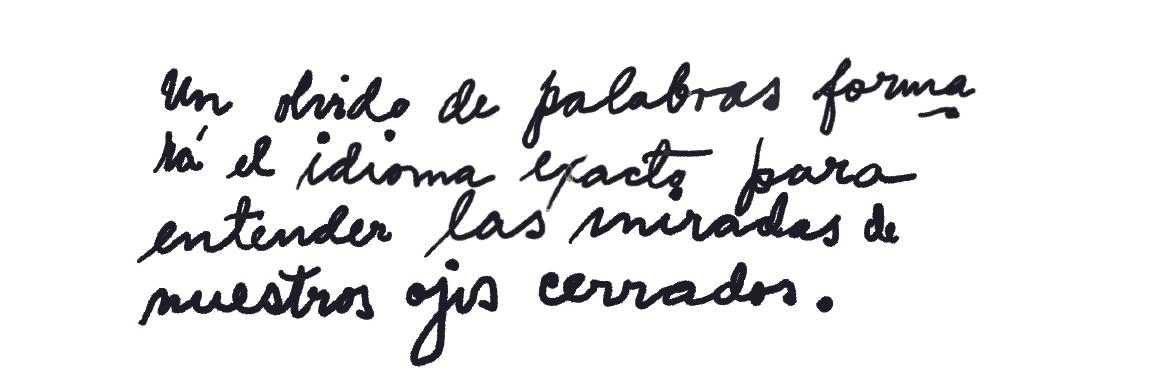 Un olvido de palabras forma
rá el idioma exacto para
entender las miradas de
nuestros ojos cerrados.